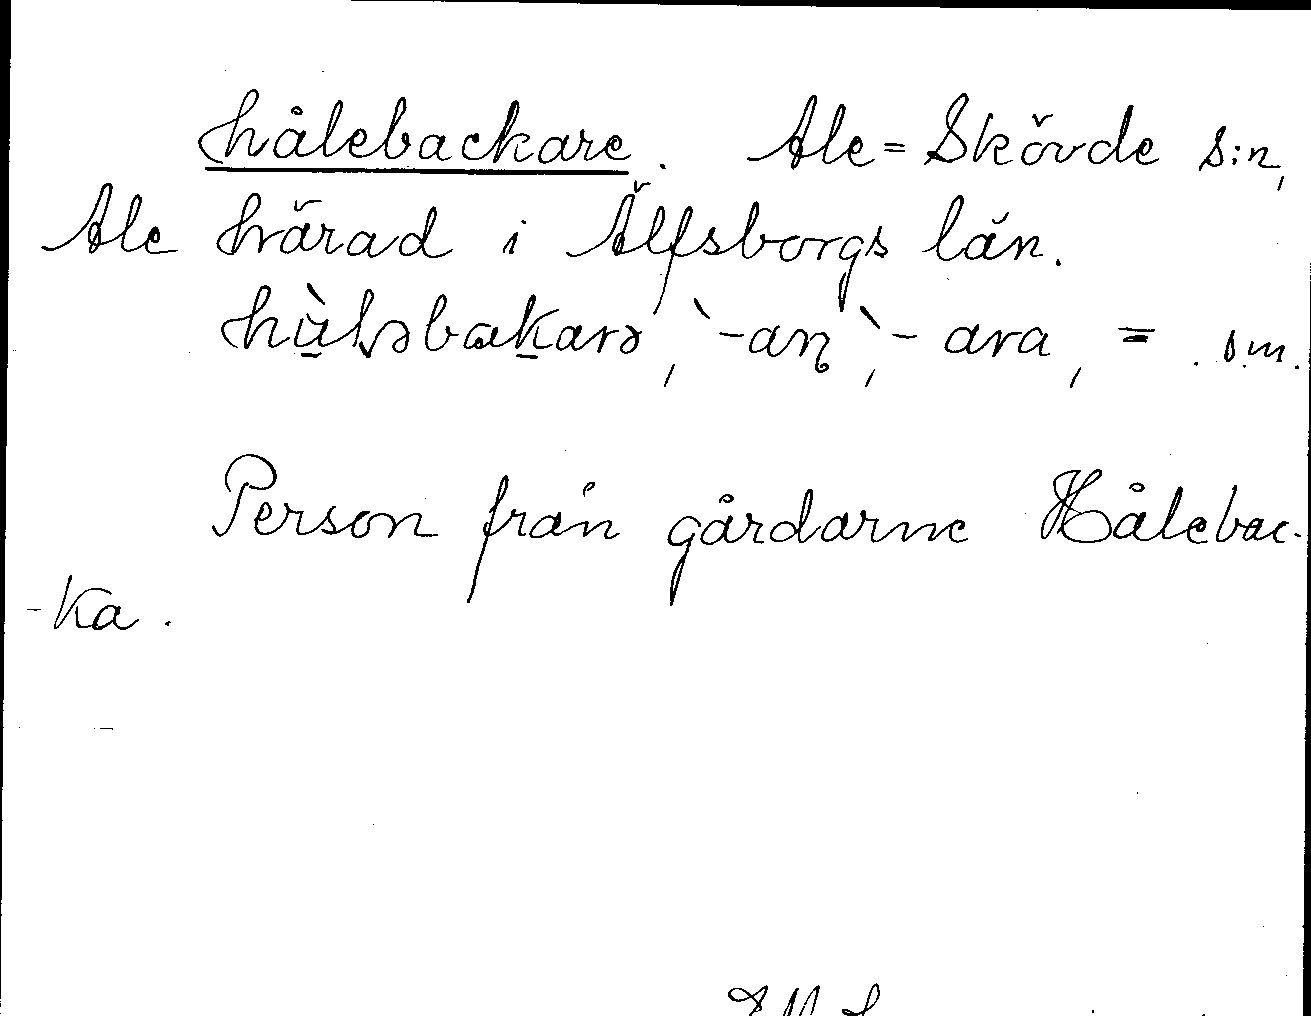 hålebackare. Ale=Skövde s:n,
Ale härad i Älfsborgs län.
-an, -ara, = . sm.
Person från gårdarne Hålebac-
-ka.